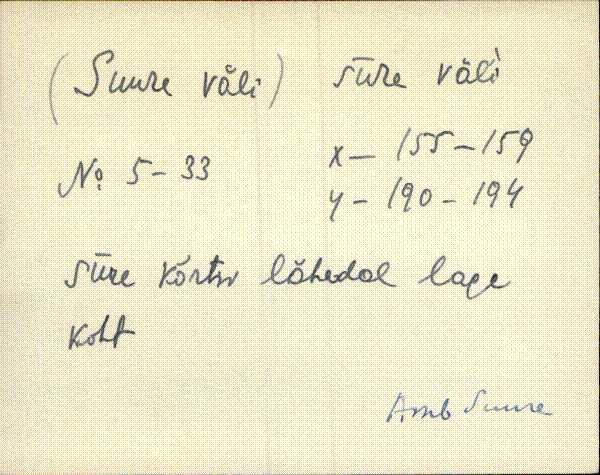 (Suure väli) süre väli
No 5-33
x — 155 — 159
y — 190 - 194
süre kõrtsi lähedal lage
koht
Amb Suure